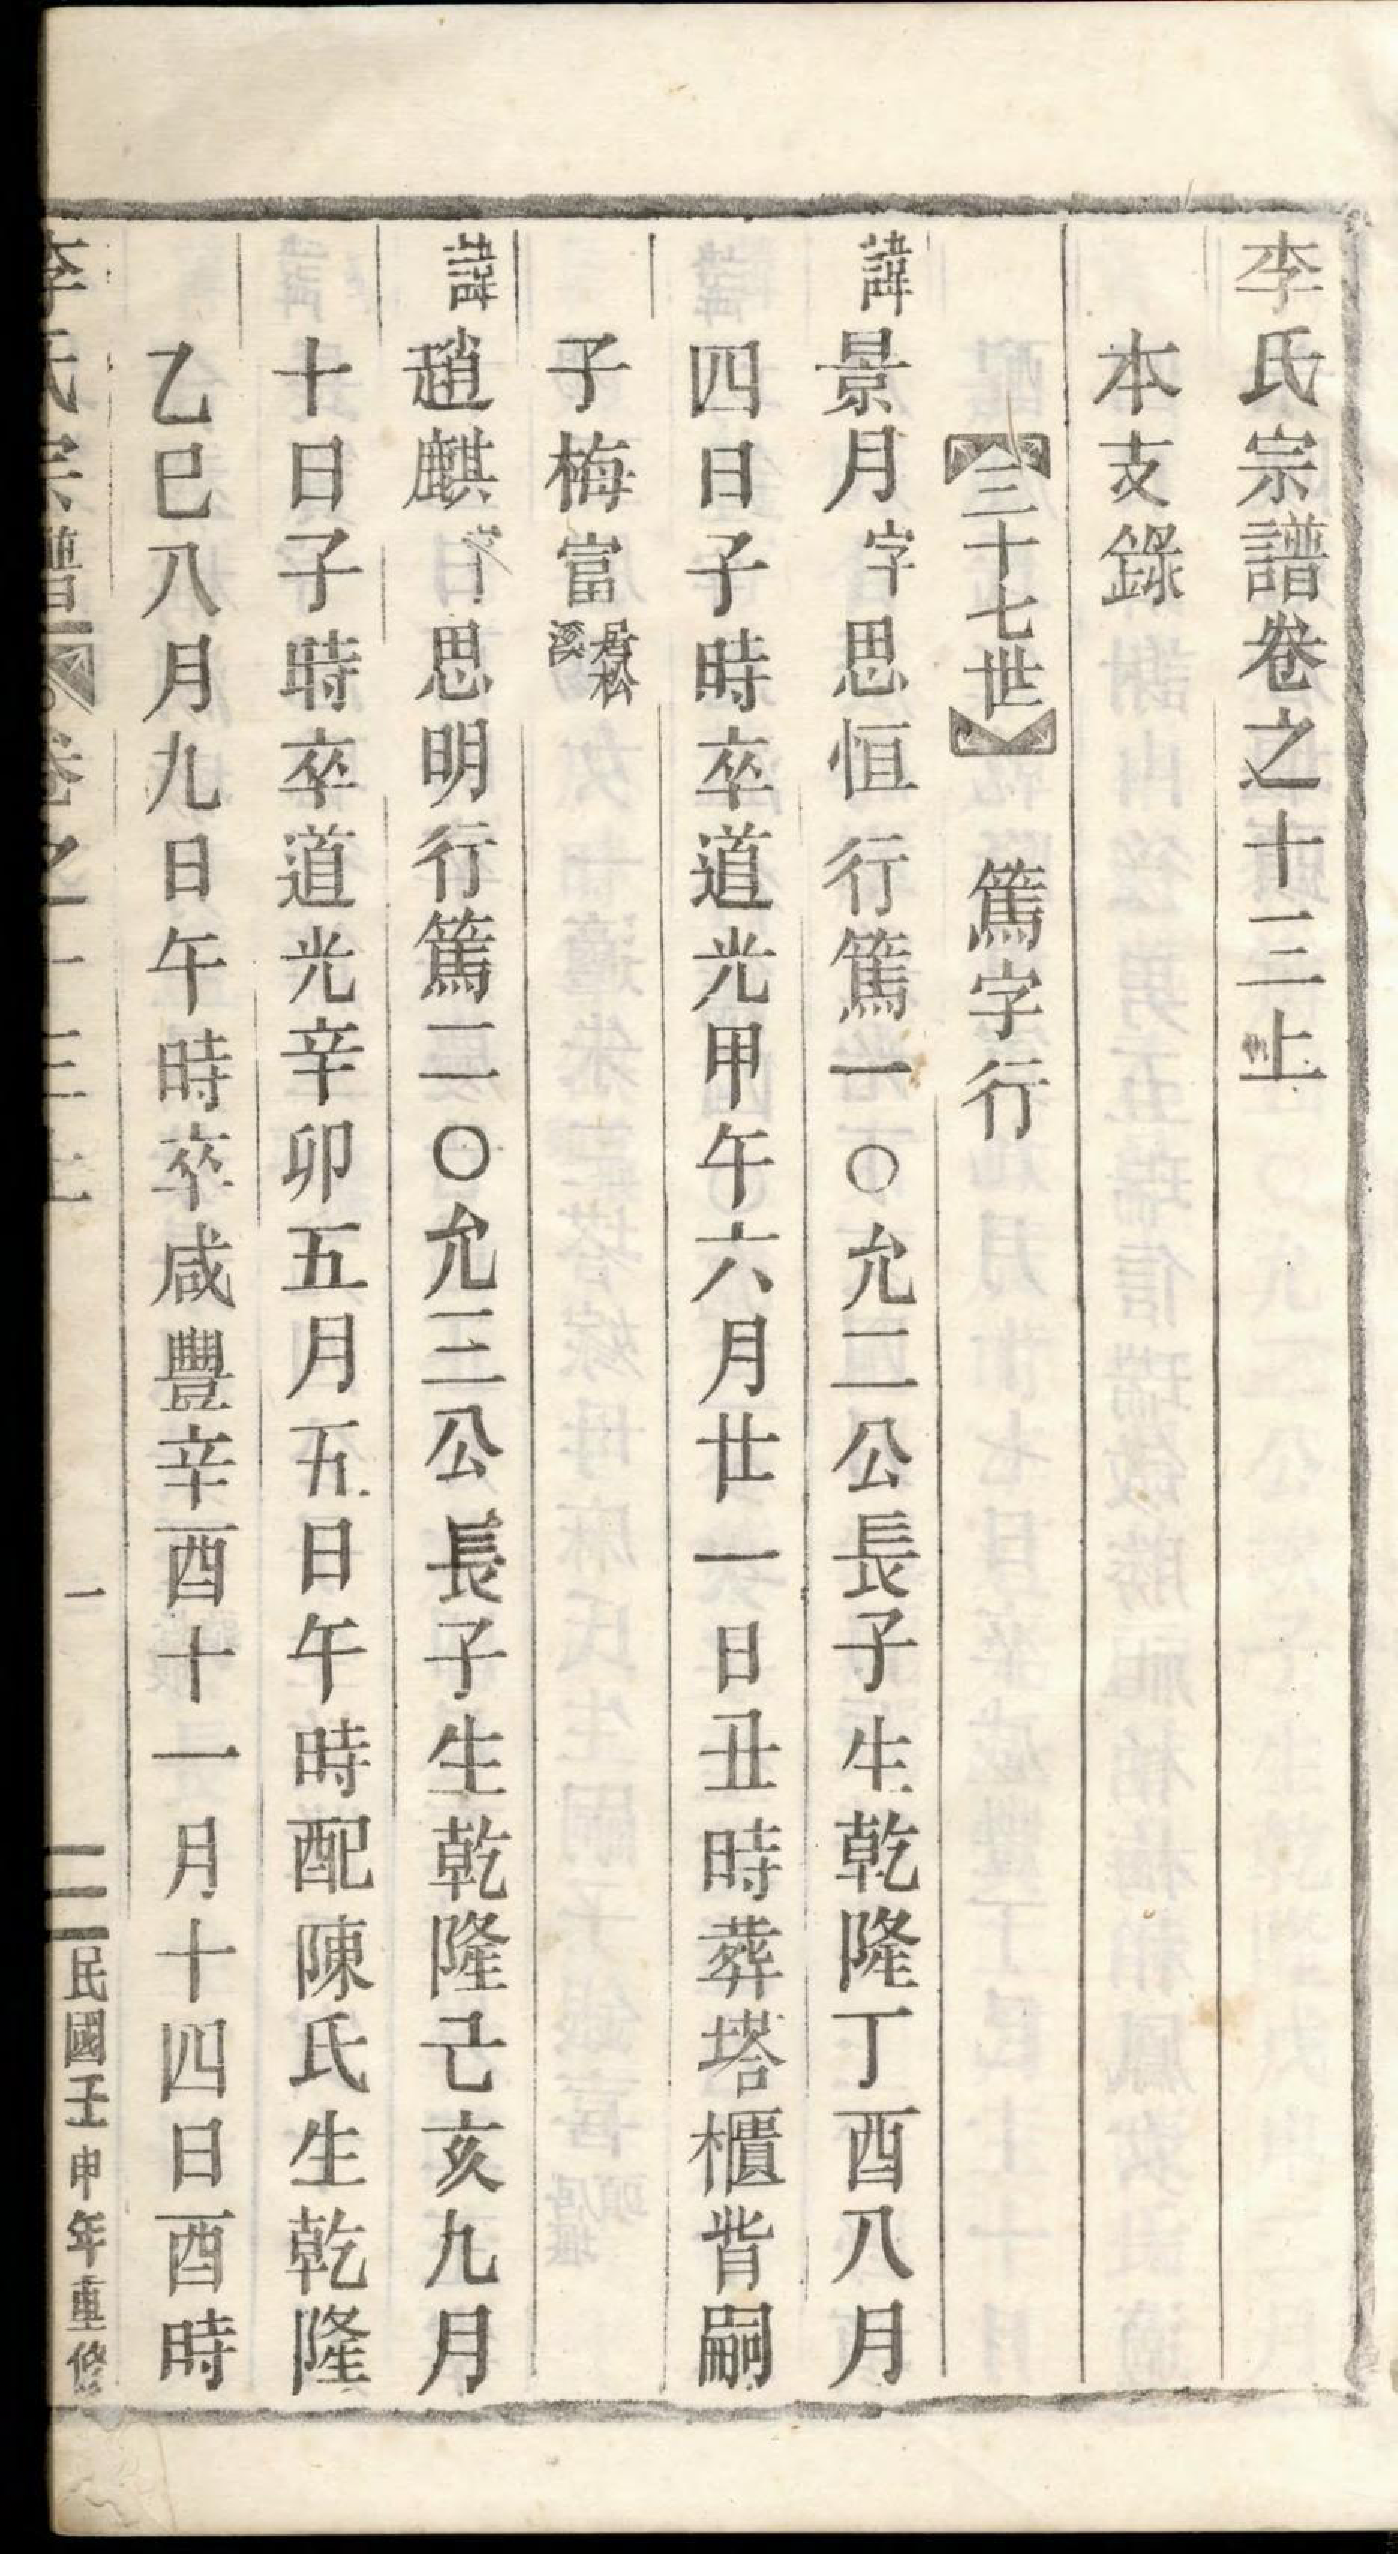 李氏宗譜卷之十三上
本支錄
三十七世 篤字行
諱景月字思恒行篤一○允二公長子生乾隆丁酉八月
四日子時卒道光甲午六月廿一日丑時葬塔櫃背嗣
子梅富居松溪
諱趙麒字思明行篤二○允三公長子生乾隆己亥九月
十日子時卒道光辛卯五月五日午時配陳氏生乾隆
乙巳八月九日午時卒咸豐辛酉十一月十四日酉時
李氏宗譜 卷之十三上 一 民國壬申年重修